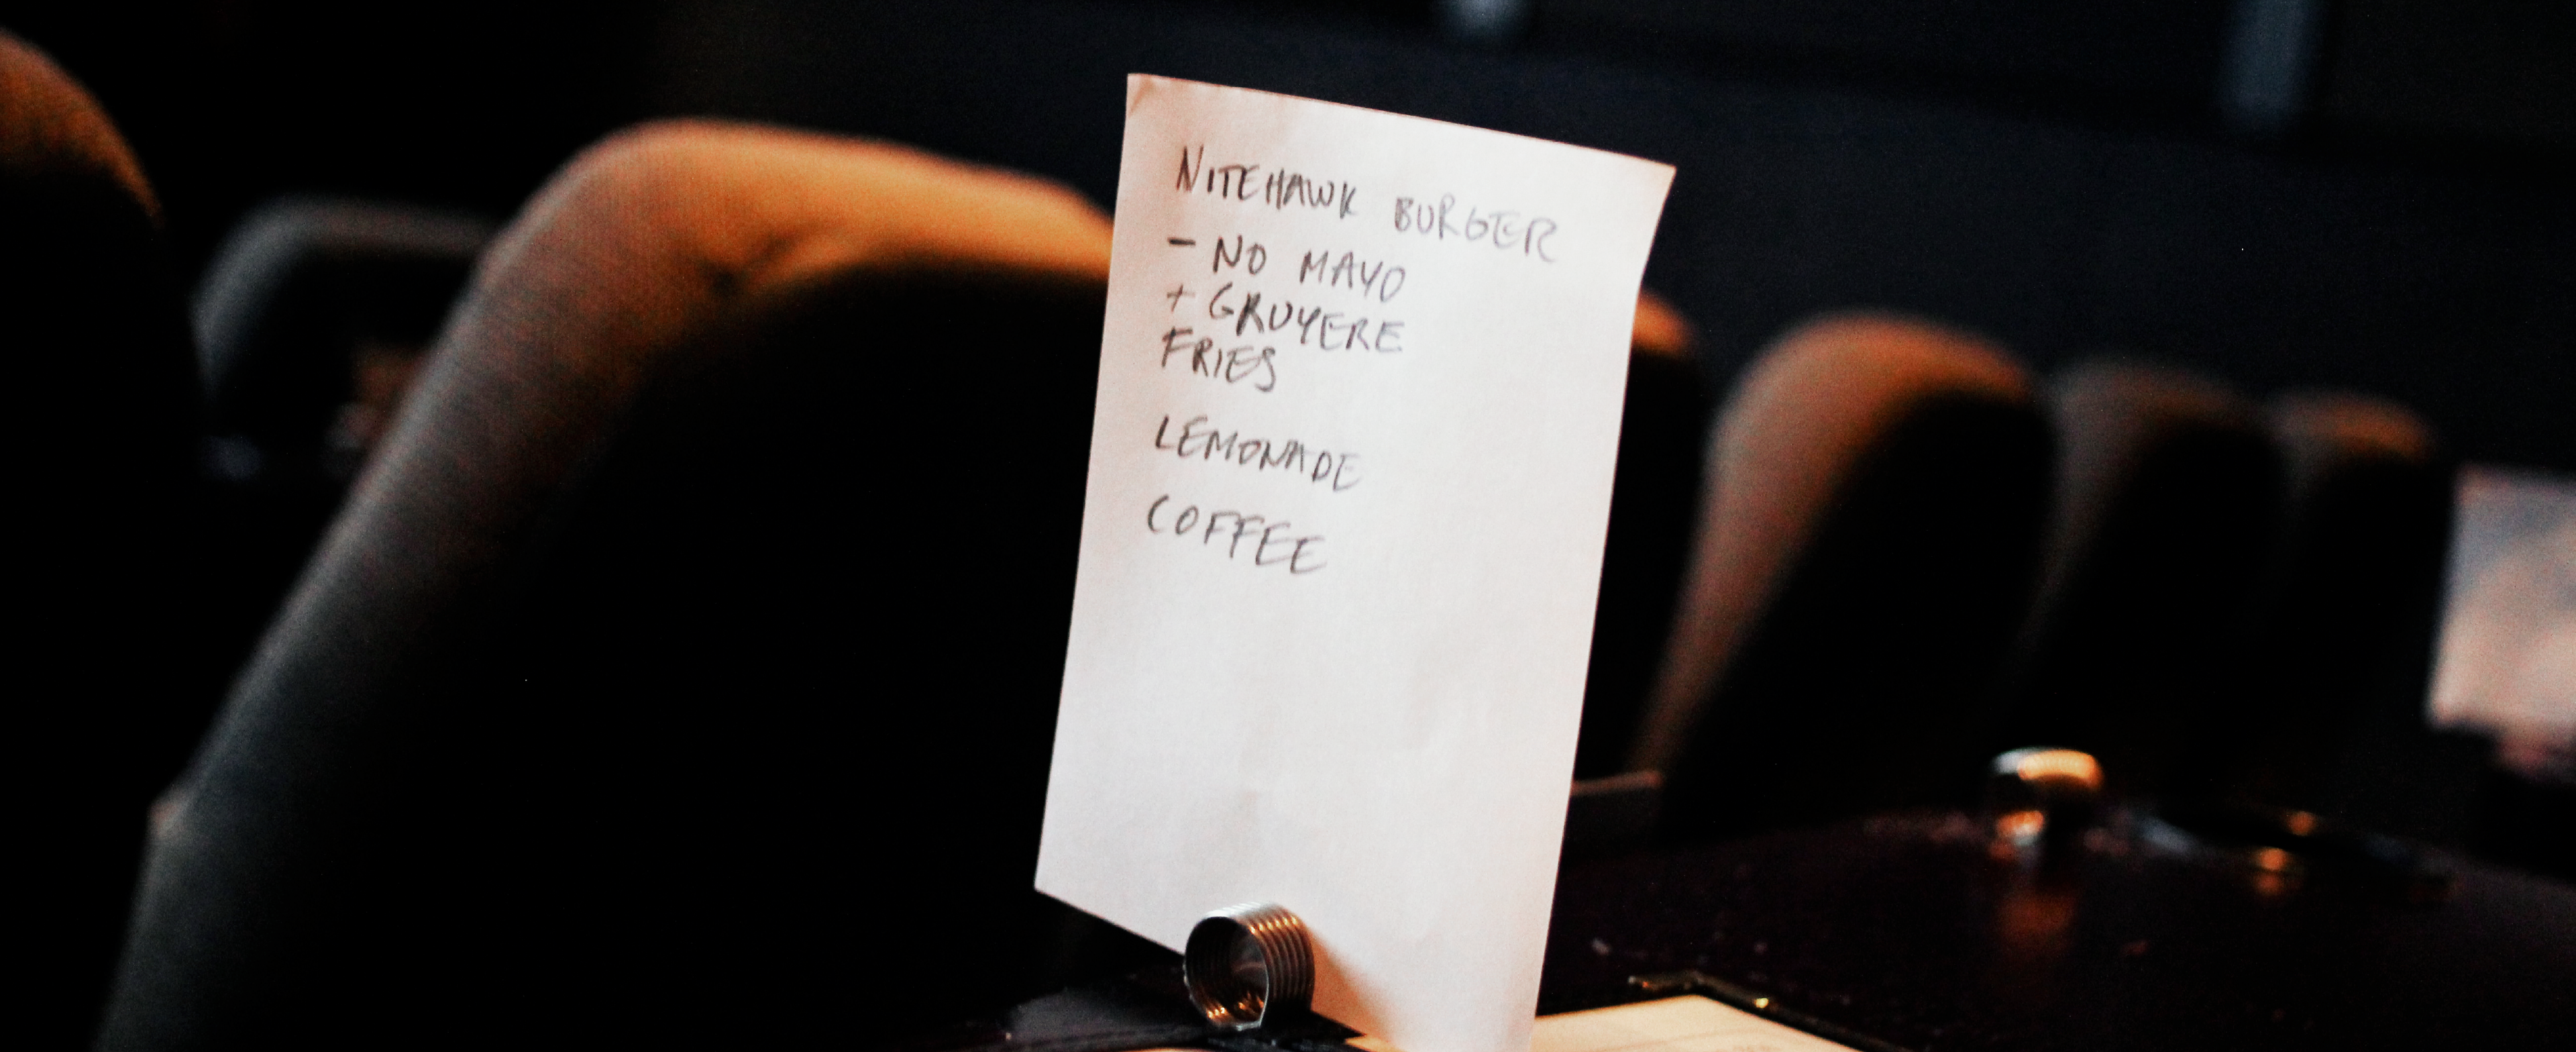 NITEHAWK BURGER
- NO MAYO
+ GRUYERE
FRIES
LEMONADE
COFFEE